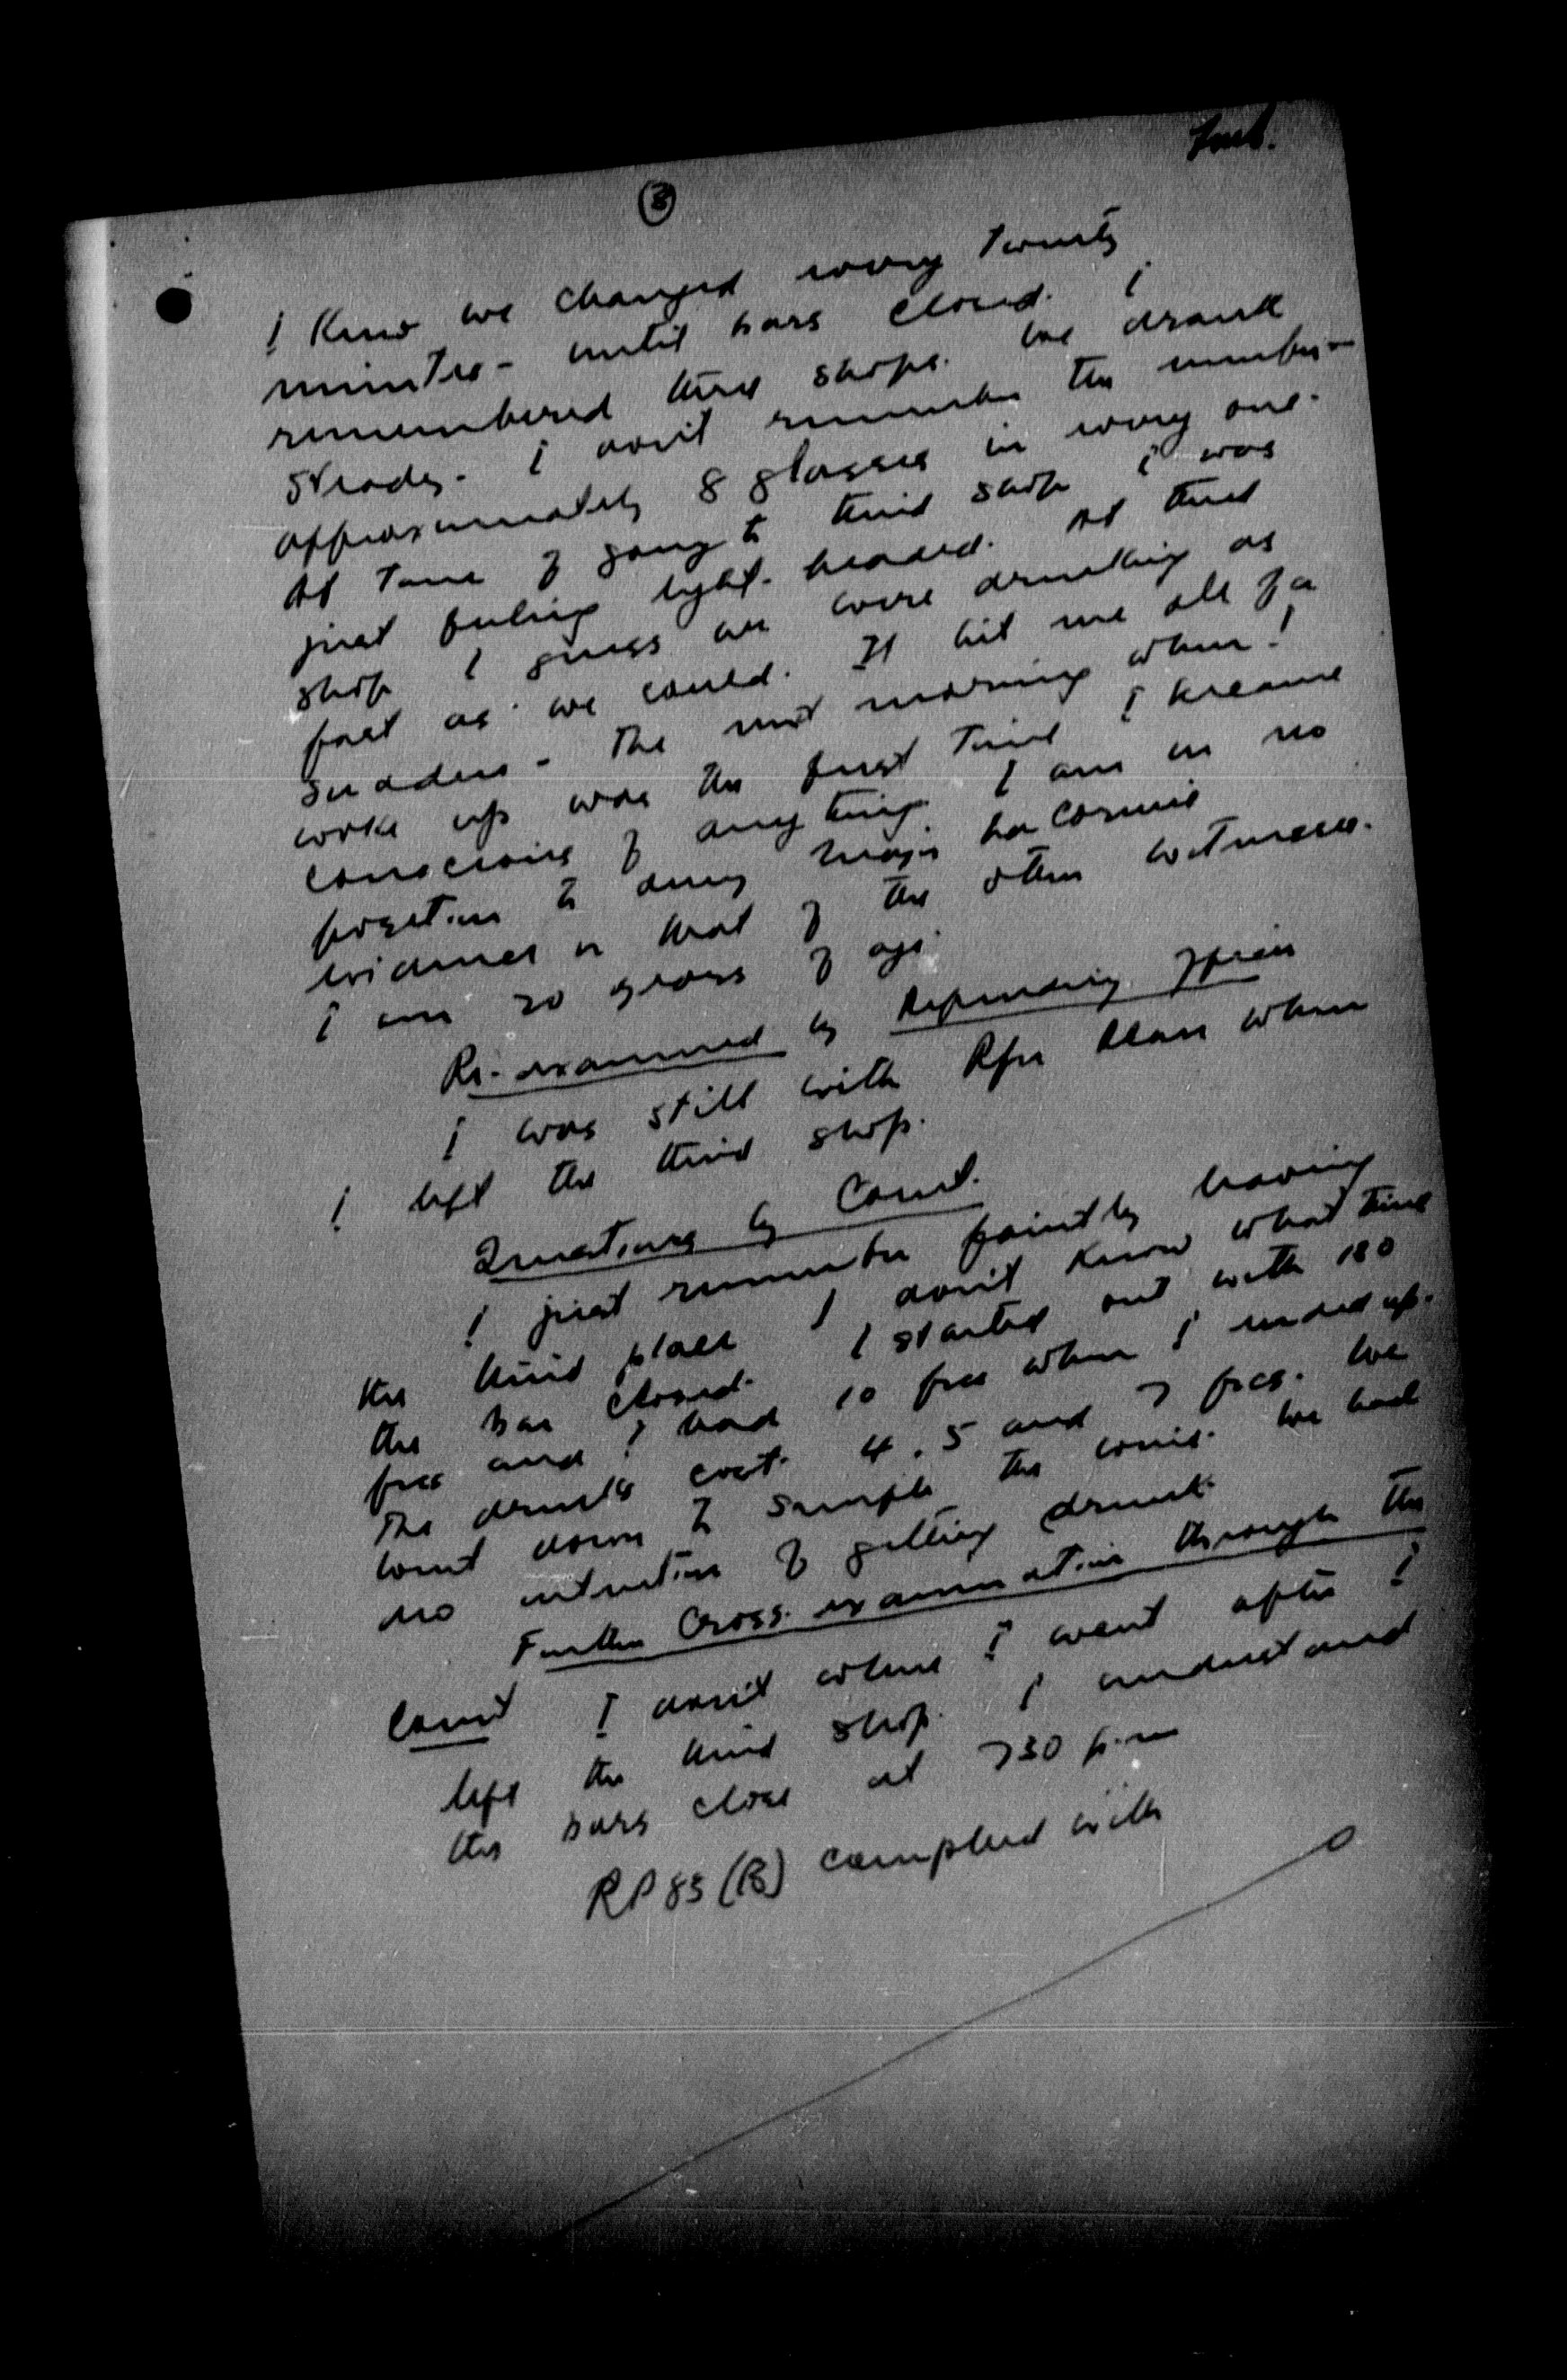 (3)
I know we changed every twenty
minutes - until bars closed. I
remembered third shops. We drank
steady. I don't remember the number -
approximately 8 glasses in every one.
At time of going to third shop I was
just feeling light-headed. At third
shop I guess we were drinking as
fast as we could. It hit me all of a
sudden. The next morning when I
woke up was the first time I became
conscious of anything. I am in no
position to deny Major
evidence or that of the other witnesses.
I am 20 years of age.
Re-examined by Defending Officer
I was still with Rfn when
I left the third shop.
Questions by Court.
I just remember faintly leaving
the third place I don't know what time
the bar closed. I started out with 180
frcs and I had 10 frcs when I ended up.
The drinks cost 4, 5 and 7 frcs. We
went down to sample the wine. We had
no intention of getting drunk.
Further Cross-examination through the
Court I don't where I went after I
left the third shop. I understand
the bars close at 730 p.m
RP 83 (B) complied with